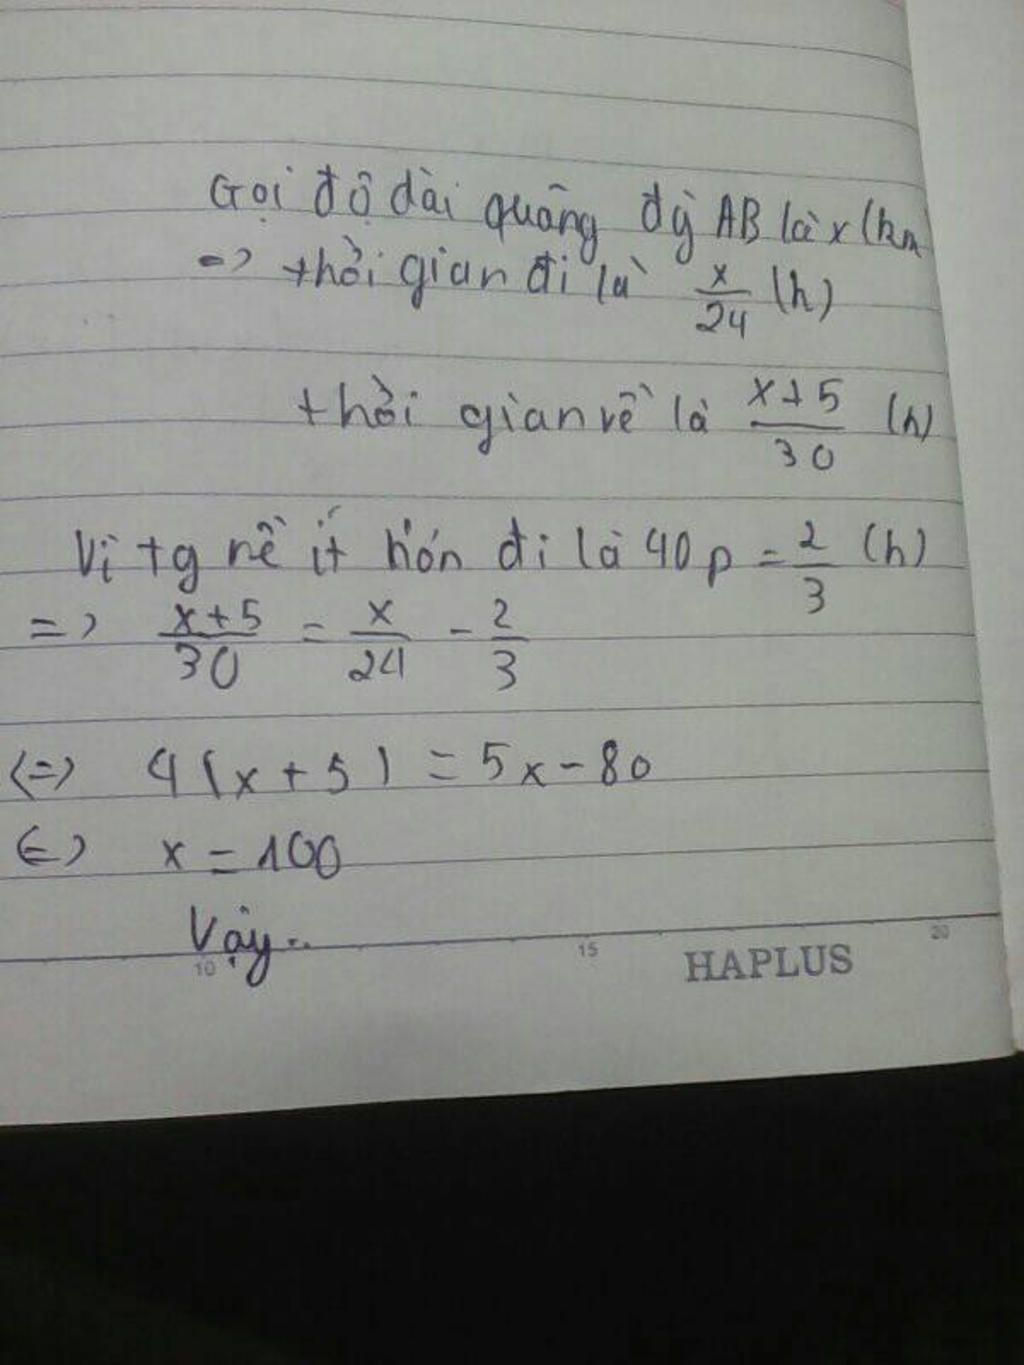 Gọi độ dài quãng đg AB là x (km
=> thời gian đi là x/24 (h)
thời gian về là x+5/30 (h)
Vì tg về ít hơn đi là 40p = 2/3 (h)
=> x+5/30 = x/24 - 2/3
<=> 4(x+5) = 5x-80
<=> x = 100
Vậy..
10 15 20
HAPLUS